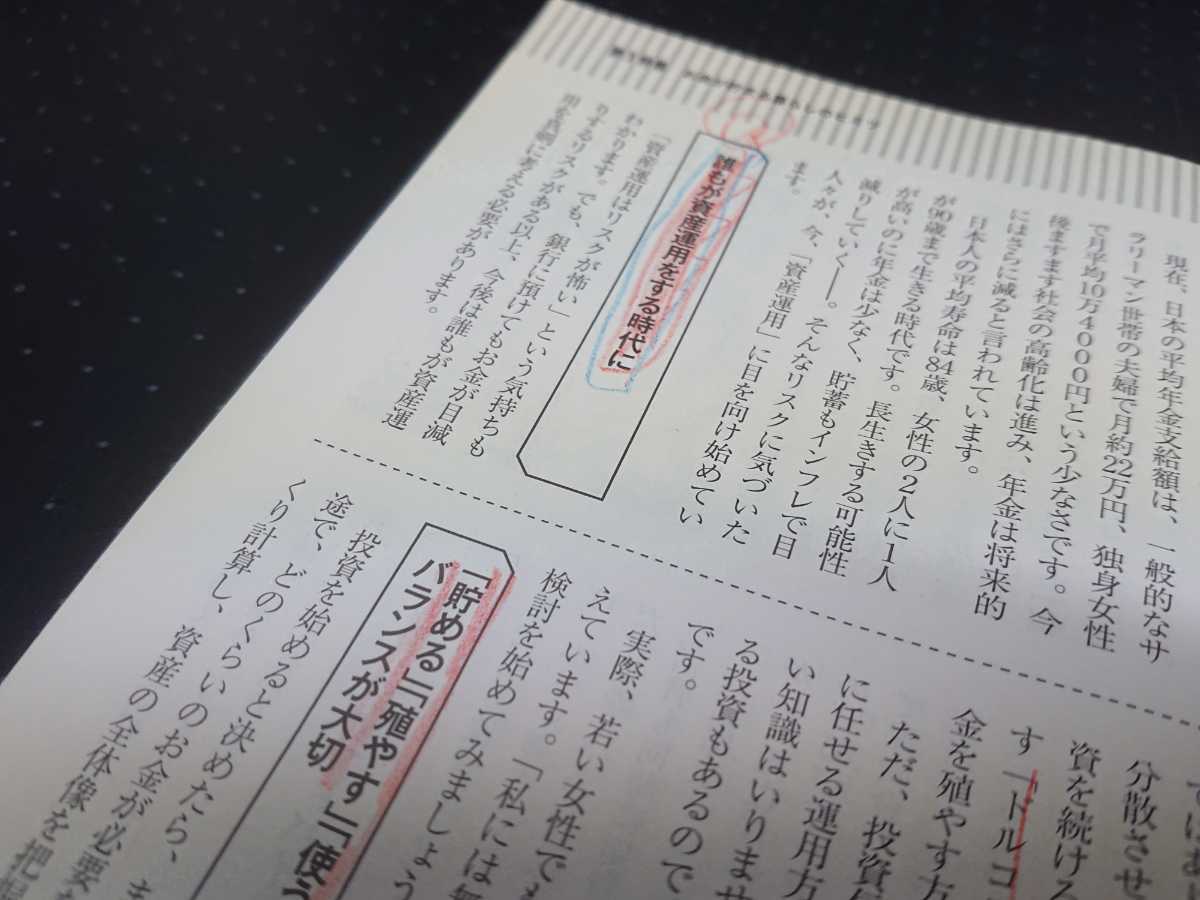 現在、日本の平均年金支給額は、一般的なサ
ラリーマン世帯の夫婦で月約22万円、独身女性
で月平均10万4000円という少なさです。今
後ますます社会の高齢化は進み、年金は将来的
にはさらに減ると言われています。
日本人の平均寿命は84歳、女性の2人に1人
が90歳まで生きる時代です。長生きする可能性
が高いのに年金は少なく、貯蓄もインフレで目
減りしていく――。そんなリスクに気づいた
人々が、今、「資産運用」に目を向け始めてい
ます。
誰もが資産運用をする時代に
「資産運用はリスクが怖い」という気持ちも
わかります。でも、銀行に預けてもお金が目減
りするリスクがある以上、今後は誰もが資産運
用を真剣に考える必要があります。
分散させ
資を続ける
す「ドルコ
金を殖やす方
ただ、投資
に任せる運用方
い知識はいりませ
る投資もあるので
です。
実際、若い女性でも
えています。「私には無
検討を始めてみましょう
「貯める」「殖やす」「使う
バランスが大切
投資を始めると決めたら、ま
途で、どのくらいのお金が必要
くり計算し、資産の全体像を把握